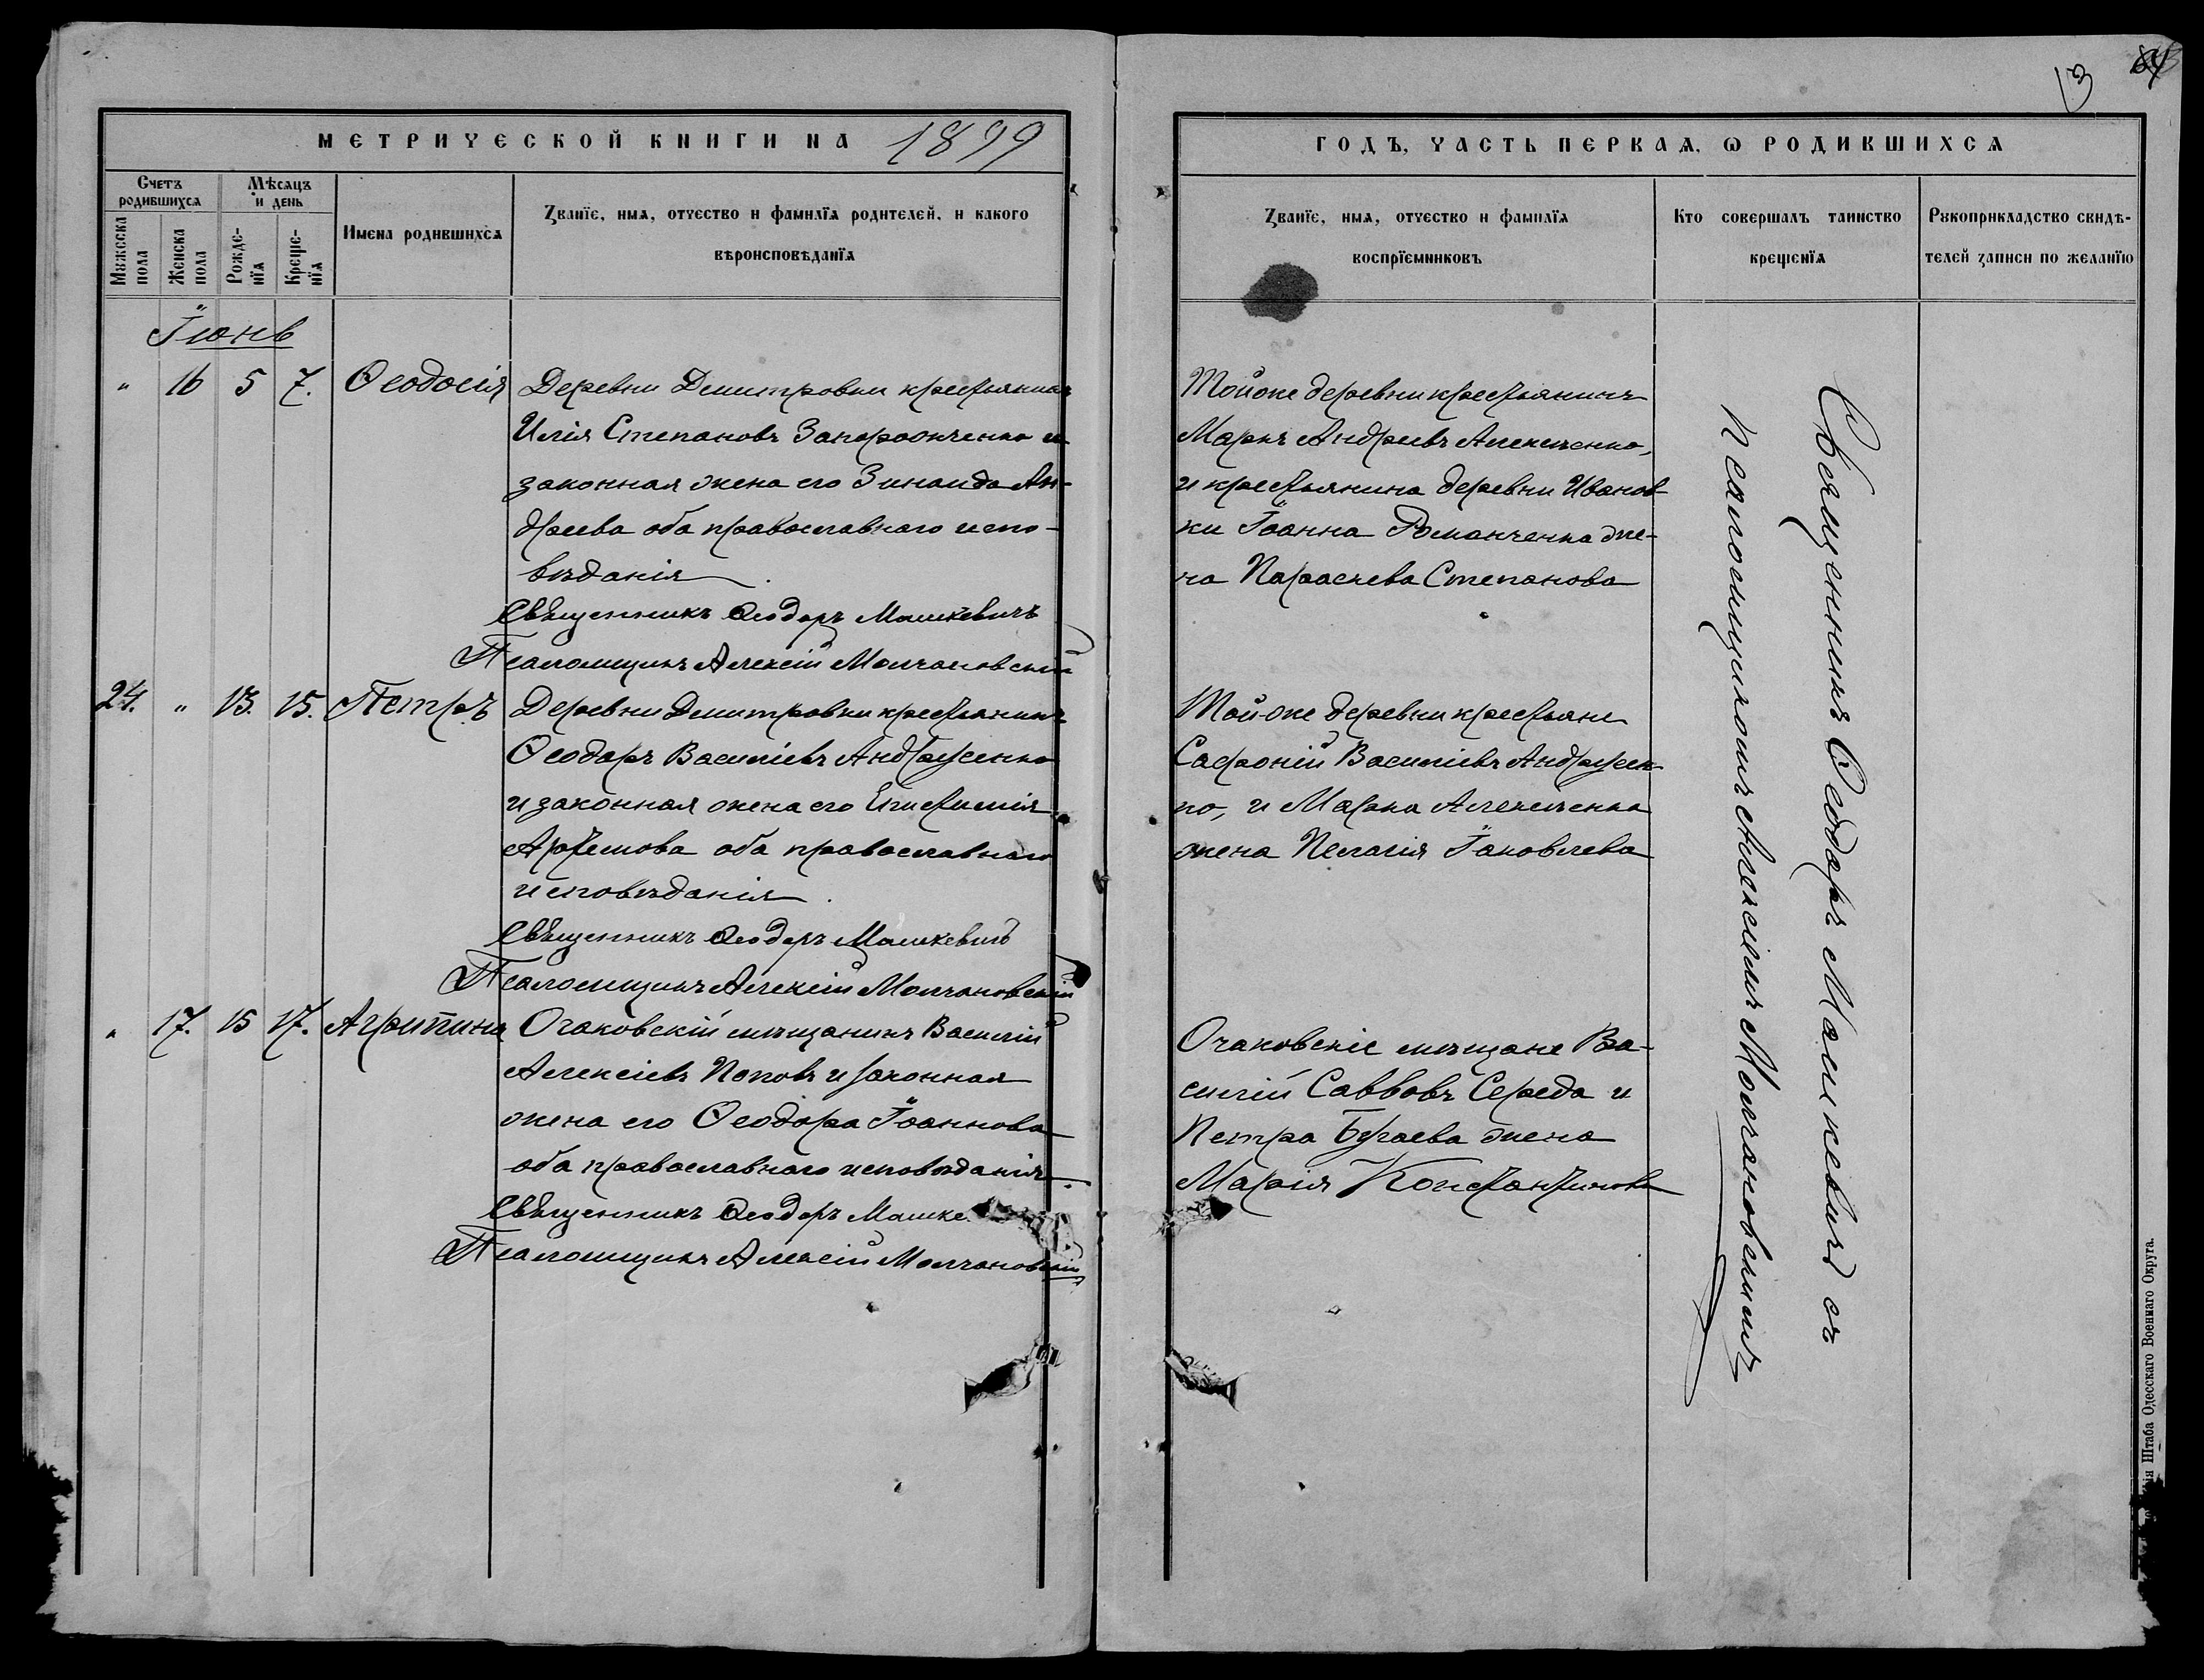 13 84
МЕТРИЧЕСКОЙ КНИГИ НА 1899
ГОДЪ, ЧАСТЬ ПЕРВАЯ, Ѡ РОДИВШИХСЯ
Счетъ родившихся
Мѣсяцъ и день
Мꙋжеска пола
Женска пола
Рожденїя
Крещенїя
Имена родившихся
Званїе, имя, отчество и фамилїя родителей, и какого
вѣроисповѣданїя
Званїе, имя, отчество и фамилїя
воспрїемниковъ
Кто совершалъ таинство
крещенїя
Рꙋкоприкладство свидѣ-
телей записи по желанїю
Іюнь
" 16 5 7. Ѳеодосія
Деревни Димитровки крестьянинъ
Илія Степановъ Запорожченко и
законная жена его Зинаида Ан-
дреева оба православнаго испо-
вѣданія.
Священникъ Ѳеодоръ Машкевичъ
Псаломщикъ Алексій Молчановскій
Той же деревни крестьянинъ
Маркъ Андреевъ Алексеенко,
и крестьянина деревни Иванов-
ки Іоанна Романченка же-
на Параскева Степанова
24. " 13. 15. Петръ
Деревни Димитровки крестьянинъ
Ѳеодоръ Василіевъ Андрусенко
и законная жена его Епистимія
Артемова оба православнаго
исповѣданія.
Священникъ Ѳеодоръ Машкевичъ
Псаломщикъ Алексій Молчановскій
Той-же деревни крестьяне
Сафроній Василіевъ Андрусен-
ко, и Марка Алексеенка
жена Пелагія Іаковлева
" 17. 15 17. Агриппина
Очаковскій мѣщанинъ Василій
Алексіевъ Поповъ и законная
жена его Ѳеодора Іоаннова
оба православнаго исповѣданія.
Священникъ Ѳеодоръ Машке
Псаломщикъ Алексій Молчановскій
Очаковскіе мѣщане Ва-
силій Саввовъ Середа и
Петра Бугаева жена
Марія Константинова
Священникъ Ѳеодоръ Машкевичъ съ
псаломщикомъ Алексіемъ Молчановскимъ
Штаба Одесскаго Военнаго Округа.